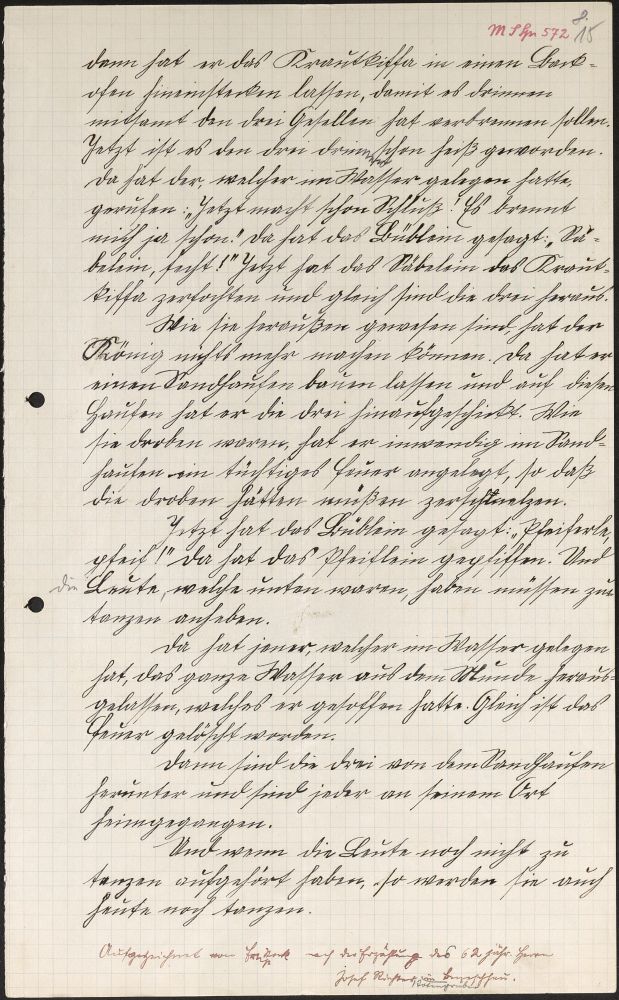 M Spr 572 8.
15
dann hat er das Krautkiffa in einen Back-
ofen hineinstecken lassen, damit es drinnen
mitsamt den drei Gesellen hat verbrennen sollen.
Jetzt ist es den drei drinnen schon heiß geworden.
Da hat der, welcher im Wasser gelegen hatte,
gerufen: „Jetzt macht schon Schluß! Es brennt
mich ja schon!" Da hat das Büblein gesagt: „Sä-
belein, ficht!" Jetzt hat das Säbelein das Kraut-
kiffa zerfochten und gleich sind die drei heraus.
Wie sie heraußen gewesen sind, hat der
König nichts mehr machen können. Da hat er
einen Sandhaufen bauen lassen und auf diesen
Haufen hat er die drei hinaufgeschickt. Wie
sie droben waren, hat er inwendig im Sand-
haufen ein tüchtiges Feuer angelegt, so daß
die droben hätten müßen zerschmelzen.
Jetzt hat das Büblein gesagt: „Pfeiferle,
pfeif!" Da hat das Pfeiflein gepfiffen. Und
die Leute, welche unten waren, haben müssen zu
tanzen anheben.
Da hat jener, welcher im Wasser gelegen
hat, das ganze Wasser aus dem Munde heraus-
gelassen, welches er gesoffen hatte. Gleich ist das
Feuer gelöscht worden.
Dann sind die drei von dem Sandhaufen
herunter und sind jeder an seinem Ort
heimgegangen.
Und wenn die Leute noch nicht zu
tanzen aufgehört haben, so werden sie auch
heute noch tanzen.
Aufgezeichnet von nach der Erzählung des 62 jähr. Herrn
Josef Richter in